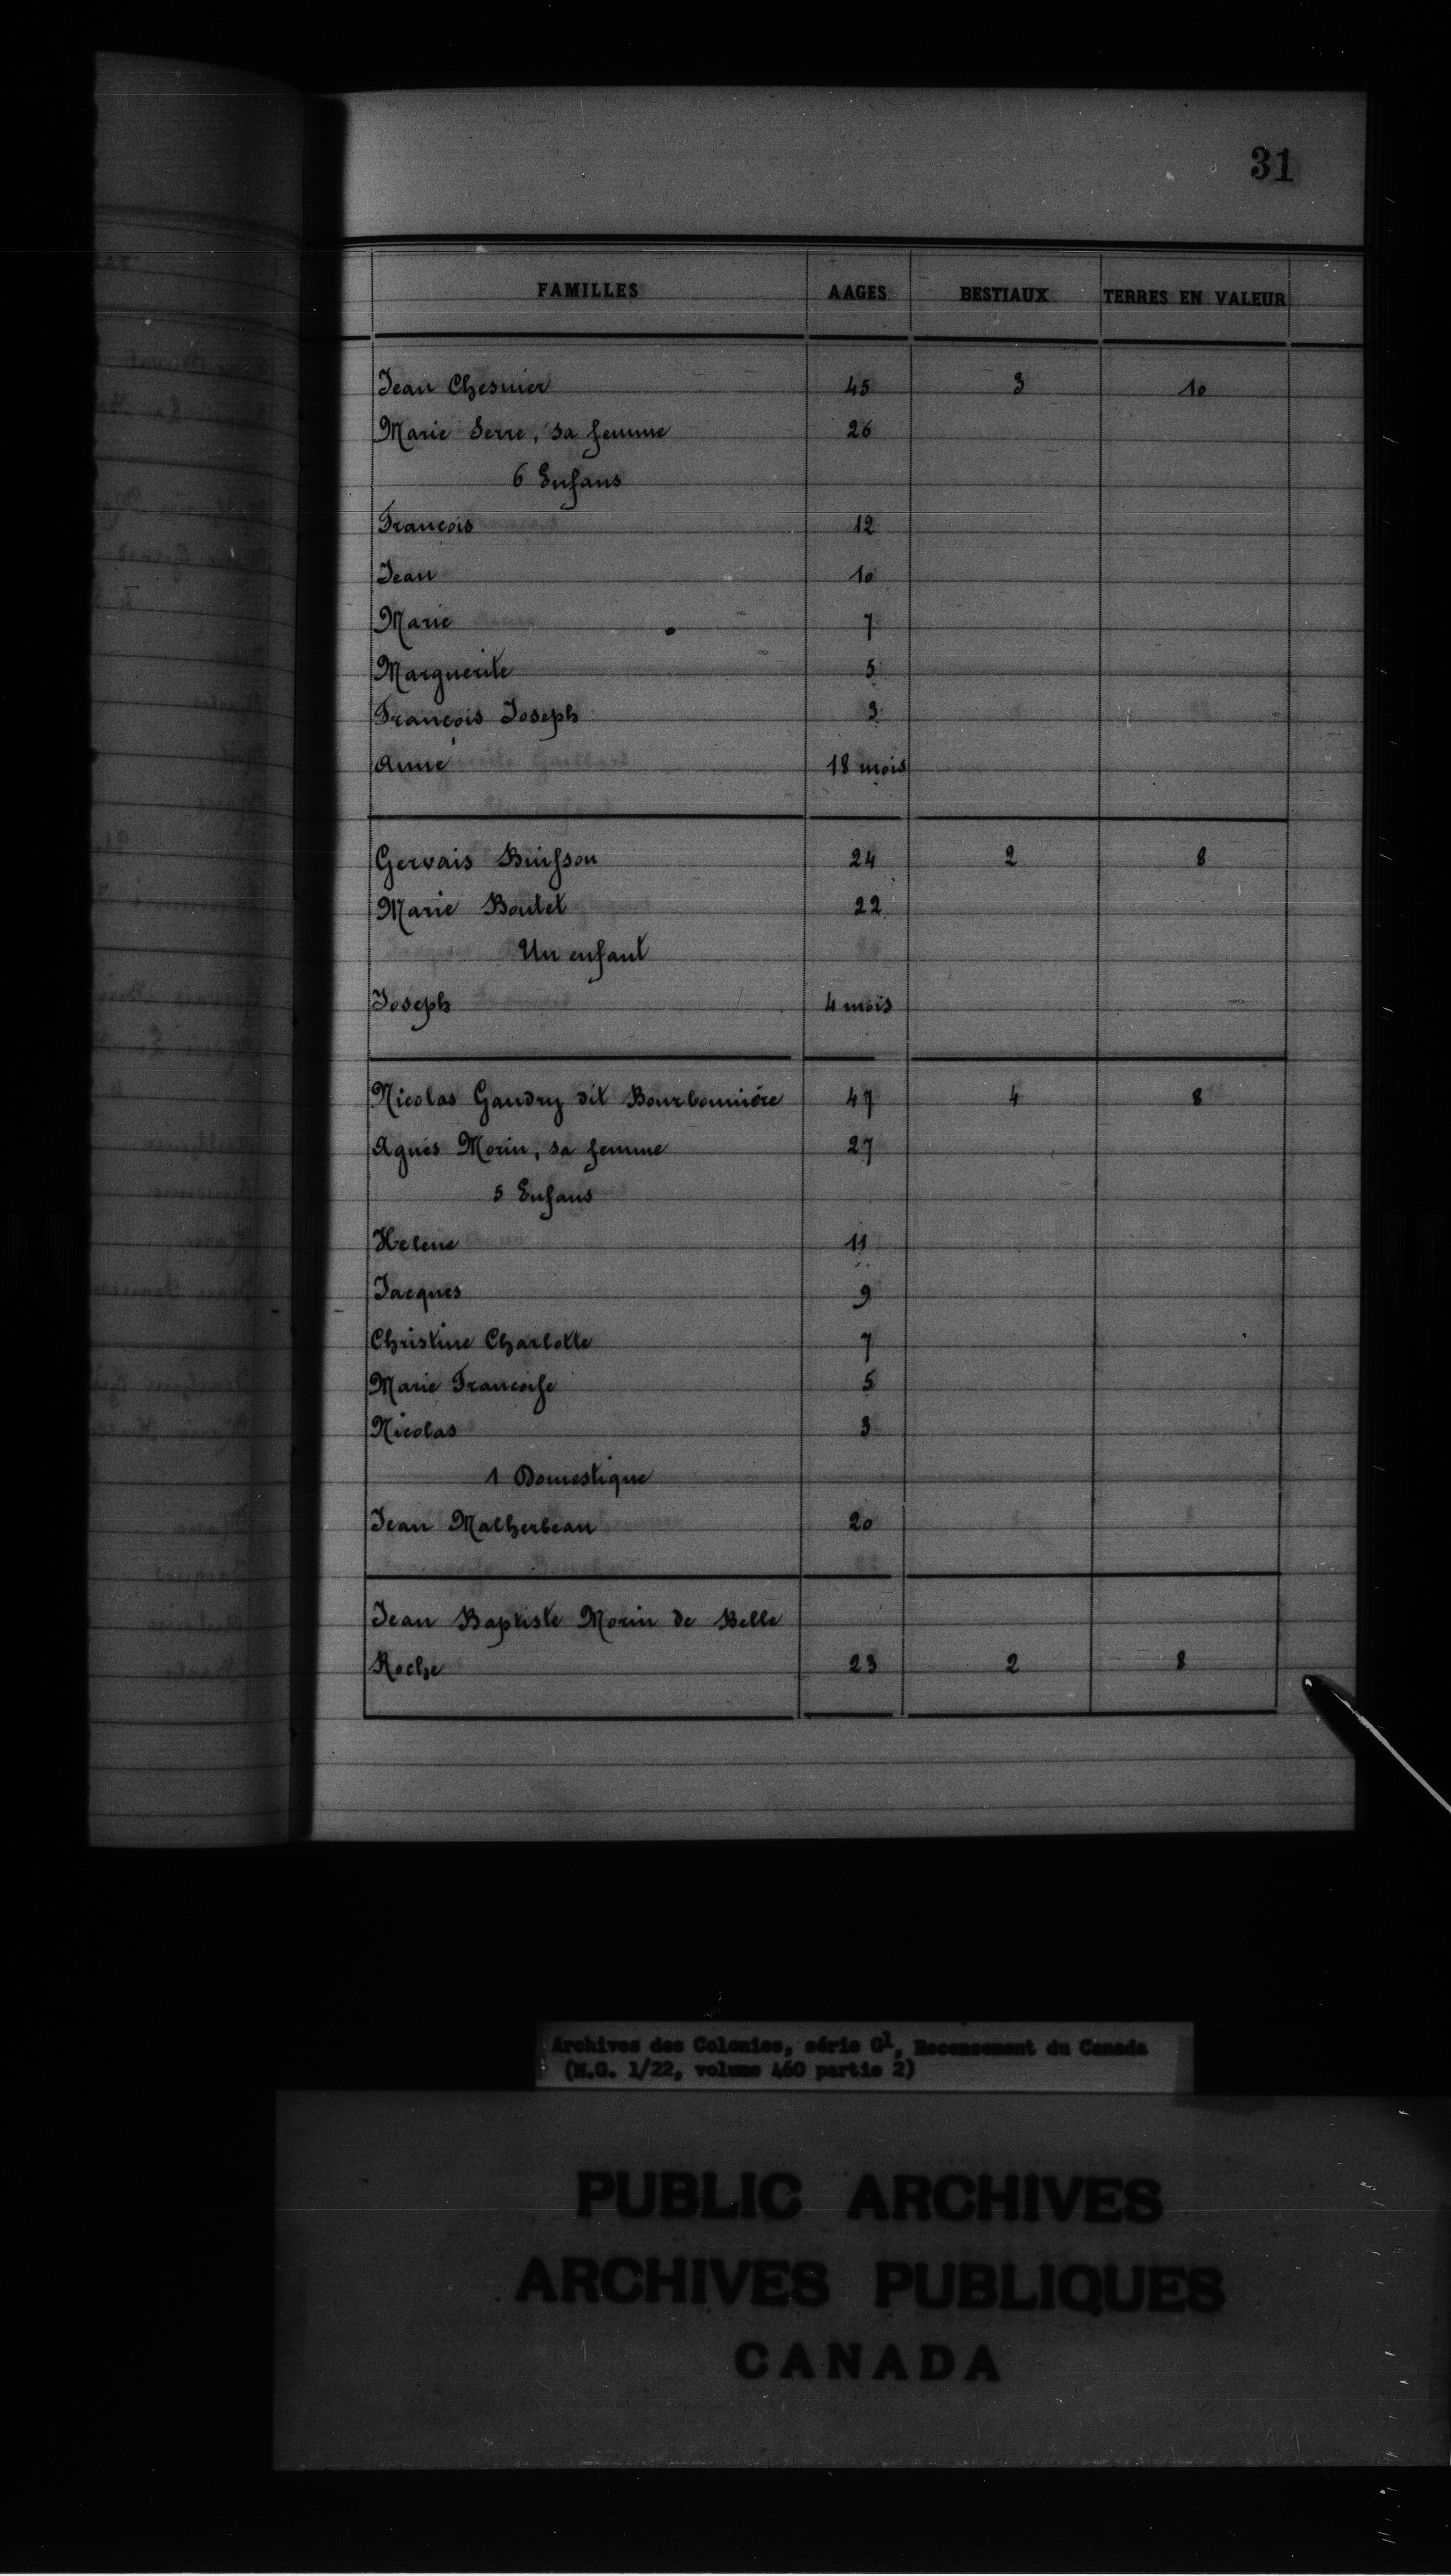 31
FAMILLES AAGES BESTIAUX TERRES EN VALEUR
Jean Chesnier 45 3 10
Marie Serre, sa femme 26
6 Enfans
François 12
Jean 10
Marie 7
Marguerite 5
François Joseph 3
Anne 18 mois
Gervais Buisson 24 2 8
Marie Boutet 22
Un enfant
Joseph 4 mois
Nicolas Gaudry dit Bourbonnière 47 4 8
Agnés Morin, sa femme 27
5 Enfans
Helene 11
Jacques 9
Christine Charlotte 7
Marie Francoise 5
Nicolas 3
1 Domestique
Jean Malherbeau 20
Jean Baptiste Morin de Belle
Roche 23 2 8
Archives des Colonies, série G1, Recensement du Canada
(M.G. 1/22, volume 460 partie 2)
PUBLIC ARCHIVES
ARCHIVES PUBLIQUES
CANADA